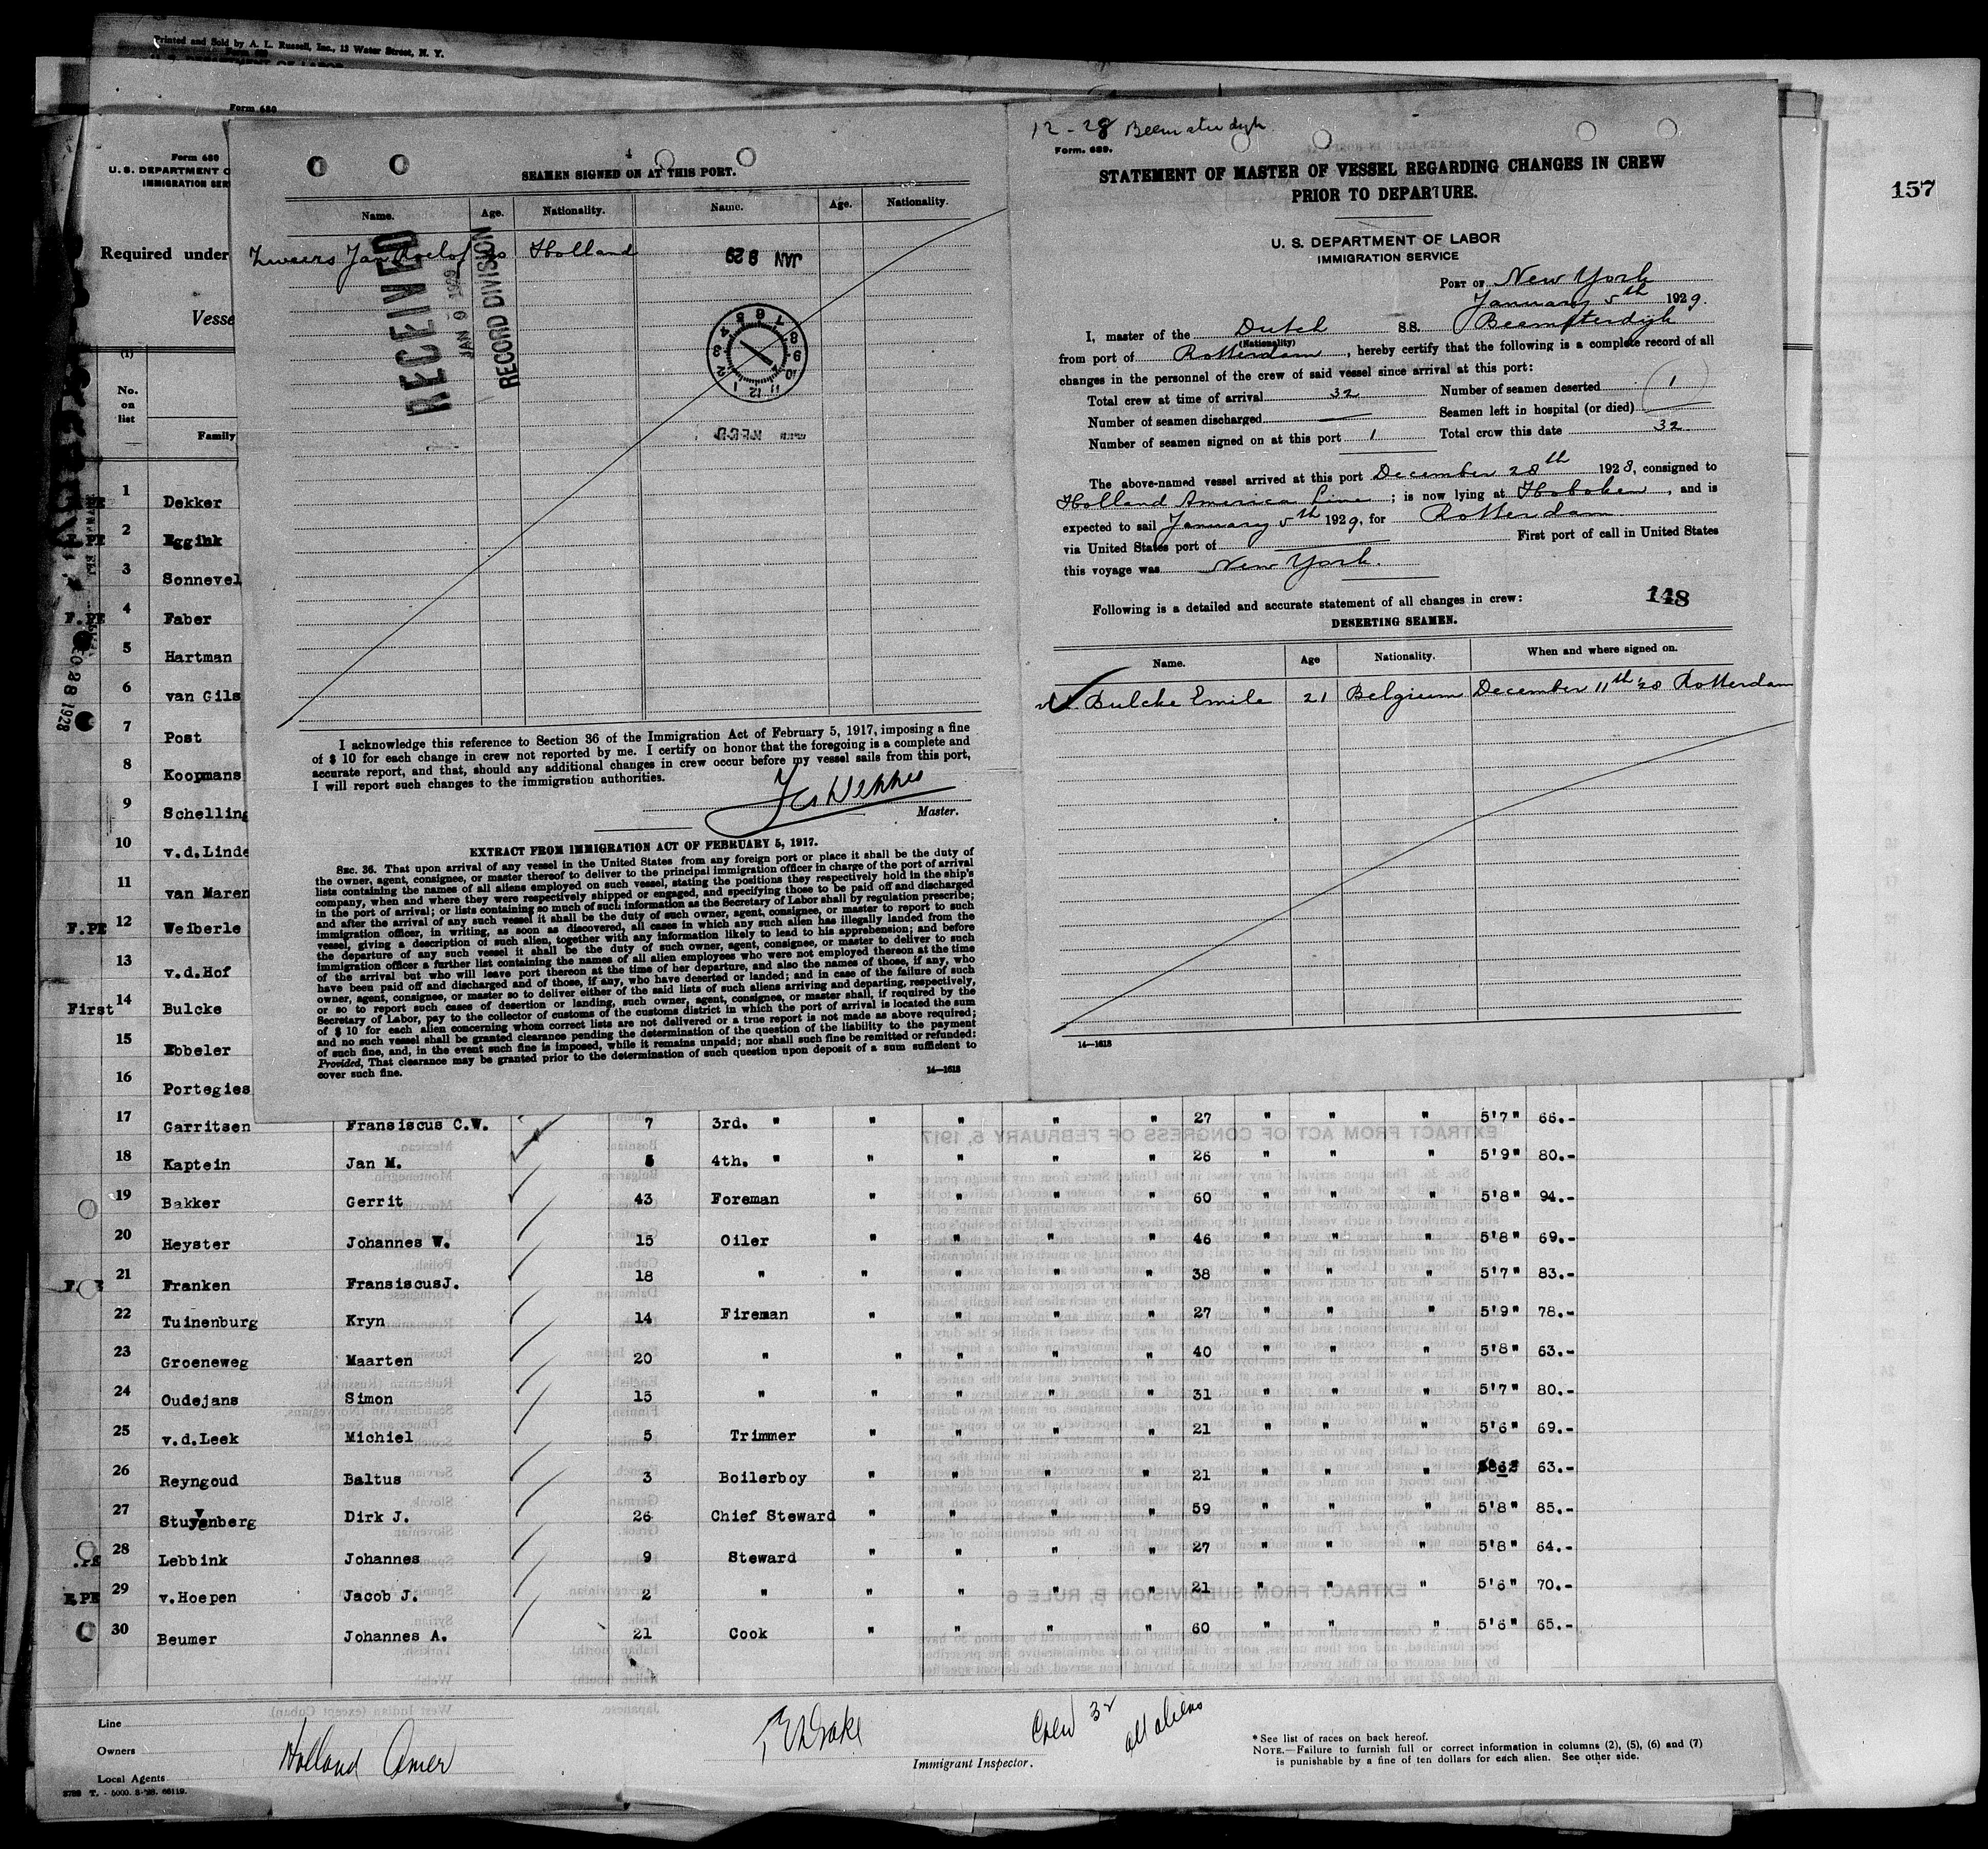 Printed and Sold by A. L. Russell, Inc., 13 Water Street, N. Y.
Form 680
Form 680
U. S. DEPARTMENT O
IMMIGRATION SER
Required under
Vesse
(1)
No. on list
Family
157
SEAMEN SIGNED ON AT THIS PORT.
Name. Age. Nationality. Name. Age. Nationality.
Zweers Jan Roelof Holland
RECEIVED
JAN 9 1929
RECORD DIVISION
JAN 9 29
I acknowledge this reference to Section 36 of the Immigration Act of February 5, 1917, imposing a fine
of $ 10 for each change in crew not reported by me. I certify on honor that the foregoing is a complete and
accurate report, and that, should any additional changes in crew occur before my vessel sails from this port,
I will report such changes to the immigration authorities.
Master.
EXTRACT FROM IMMIGRATION ACT OF FEBRUARY 5, 1917.
SEC. 36. That upon arrival of any vessel in the United States from any foreign port or place it shall be the duty of
the owner, agent, consignee, or master thereof to deliver to the principal immigration officer in charge of the port of arrival
lists containing the names of all aliens employed on such vessel, stating the positions they respectively hold in the ship's
company, when and where they were respectively shipped or engaged, and specifying those to be paid off and discharged
in the port of arrival; or lists containing so much of such information as the Secretary of Labor shall by regulation prescribe;
and after the arrival of any such vessel it shall be the duty of such owner, agent, consignee, or master to report to such
immigration officer, in writing, as soon as discovered, all cases in which any such alien has illegally landed from the
vessel, giving a description of such alien, together with any information likely to lead to his apprehension; and before
the departure of any such vessel it shall be the duty of such owner, agent, consignee, or master to deliver to such
immigration officer a further list containing the names of all alien employees who were not employed thereon at the time
of the arrival but who will leave port thereon at the time of her departure, and also the names of those, if any, who
have been paid off and discharged and of those, if any, who have deserted or landed; and in case of the failure of such
owner, agent, consignee, or master so to deliver either of the said lists of such aliens arriving and departing, respectively,
or so to report such cases of desertion or landing, such owner, agent, consignee, or master shall, if required by the
Secretary of Labor, pay to the collector of customs of the customs district in which the port of arrival is located the sum
of $ 10 for each alien concerning whom correct lists are not delivered or a true report is not made as above required;
and no such vessel shall be granted clearance pending the determination of the question of the liability to the payment
of such fine, and, in the event such fine is imposed, while it remains unpaid; nor shall such fine be remitted or refunded:
Provided, That clearance may be granted prior to the determination of such question upon deposit of a sum sufficient to
cover such fine.
14—1618
12-28 Beemsterdyk
Form. 689.
STATEMENT OF MASTER OF VESSEL REGARDING CHANGES IN CREW
PRIOR TO DEPARTURE.
U. S. DEPARTMENT OF LABOR
IMMIGRATION SERVICE
PORT OF New York
January 5th 1929.
I, master of the Dutch S.S. Beemsterdijk
(Nationality)
from port of Rotterdam, hereby certify that the following is a complete record of all
changes in the personnel of the crew of said vessel since arrival at this port:
Total crew at time of arrival 32 Number of seamen deserted 1
Number of seamen discharged — Seamen left in hospital (or died) —
Number of seamen signed on at this port 1 Total crew this date 32
The above-named vessel arrived at this port December 28th 1928, consigned to
Holland America Line; is now lying at Hoboken, and is
expected to sail January 5th 1929, for Rotterdam
via United States port of — First port of call in United States
this voyage was New York.
Following is a detailed and accurate statement of all changes in crew: 148
DESERTING SEAMEN.
Name. Age Nationality. When and where signed on.
Bulcke Emile 21 Belgium December 11th '28 Rotterdam
14—1618
1 Dekker
2 Eggink
3 Sonnevel
F.PE 4 Faber
5 Hartman
6 van Gils
7 Post
8 Koopmans
9 Schelling
10 v.d.Linde
11 van Maren
F.PE 12 Weiberle
13 v.d.Hof
First 14 Bulcke
15 Ebbeler
16 Portegies
17 Garritsen Fransiscus C.W. 7 3rd. " " " " " 27 " " " 5'7" 66.-
18 Kaptein Jan M. 5 4th. " " " " " 26 " " " 5'9" 80.-
19 Bakker Gerrit 43 Foreman " " " " 60 " " " 5'8" 94.-
20 Heyster Johannes W. 15 Oiler " " " " 46 " " " 5'8" 69.-
21 Franken FransiscusJ. 18 " " " " " 38 " " " 5'7" 83.-
22 Tuinenburg Kryn 14 Fireman " " " " 27 " " " 5'9" 78.-
23 Groeneweg Maarten 20 " " " " " 40 " " " 5'8" 63.-
24 Oudejans Simon 15 " " " " " 31 " " " 5'7" 80.-
25 v.d.Leek Michiel 5 Trimmer " " " " 21 " " " 5'6" 69.-
26 Reyngoud Baltus 3 Boilerboy " " " " 21 " " " 63.-
27 Stuyvenberg Dirk J. 26 Chief Steward " " " " 59 " " " 5'8" 85.-
28 Lebbink Johannes 9 Steward " " " " 27 " " " 5'8" 64.-
29 v.Hoepen Jacob J. 2 " " " " " 21 " " " 5'6" 70.-
30 Beumer Johannes A. 21 Cook " " " " 60 " " " 5'6" 65.-
Line
Owners Holland Amer
Local Agents
Immigrant Inspector.
Crew 32
all aliens
* See list of races on back hereof.
NOTE.—Failure to furnish full or correct information in columns (2), (5), (6) and (7)
is punishable by a fine of ten dollars for each alien. See other side.